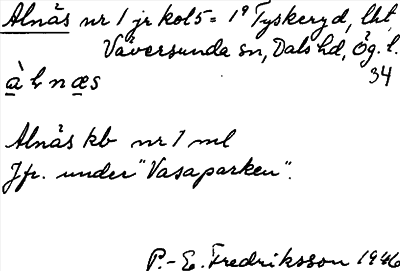 Alnäs nr 1 jr kol 5 = 1⁹ Tyskeryd, lht,
Väversunda sn, Dals hd, Ög. l.
34
a̠̍ l n æ̠ s
Alnäs kb nr 1 ml
Jfr. under "Vasaparken".
P.-E. Fredriksson 1946